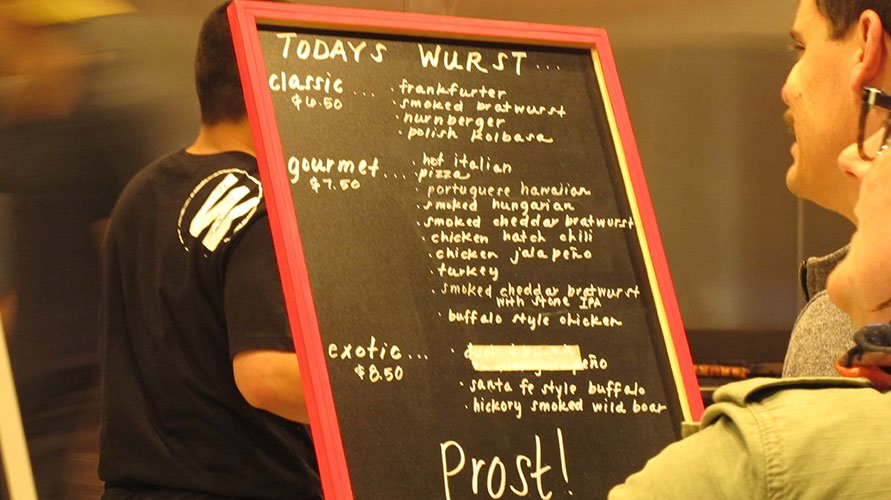 TODAYS WURST...
classic....
$6.50
· frankfurter
· smoked bratwurst
· nurnberger
· polish kolbasa
gourmet....
$7.50
· hot italian
· pizza
· portuguese hawaiian
· smoked hungarian
· smoked cheddar bratwurst
· chicken hatch chili
· chicken jalapeño
· turkey
· smoked cheddar bratwurst
with stone IPA
· buffalo style chicken
exotic...
$8.50
· santa fe style buffalo
· hickory smoked wild boar
Prost!
W